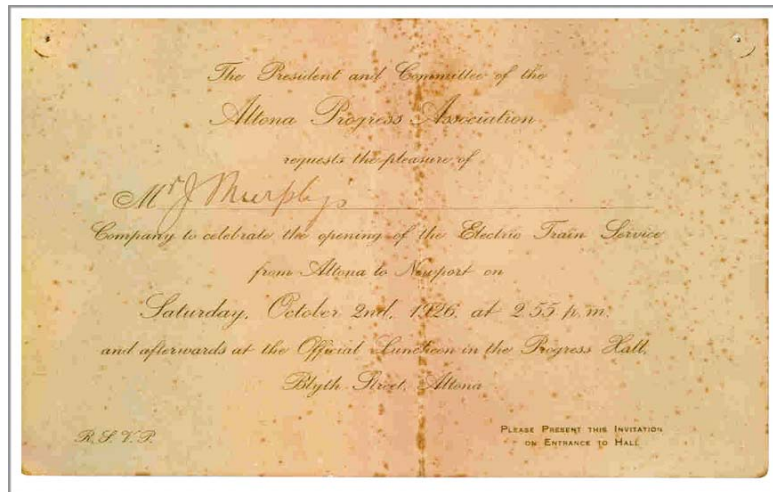 The President and Committee of the
Altona Progress Association
requests the pleasure of
Mr J Murphy's
Company to celebrate the opening of the Electric Train Service
from Altona to Newport on
Saturday, October 2nd, 1926, at 2.55 p.m.
and afterwards at the Official Luncheon in the Progress Hall,
Blyth Street, Altona
R.S.V.P.
PLEASE PRESENT THIS INVITATION
ON ENTRANCE TO HALL